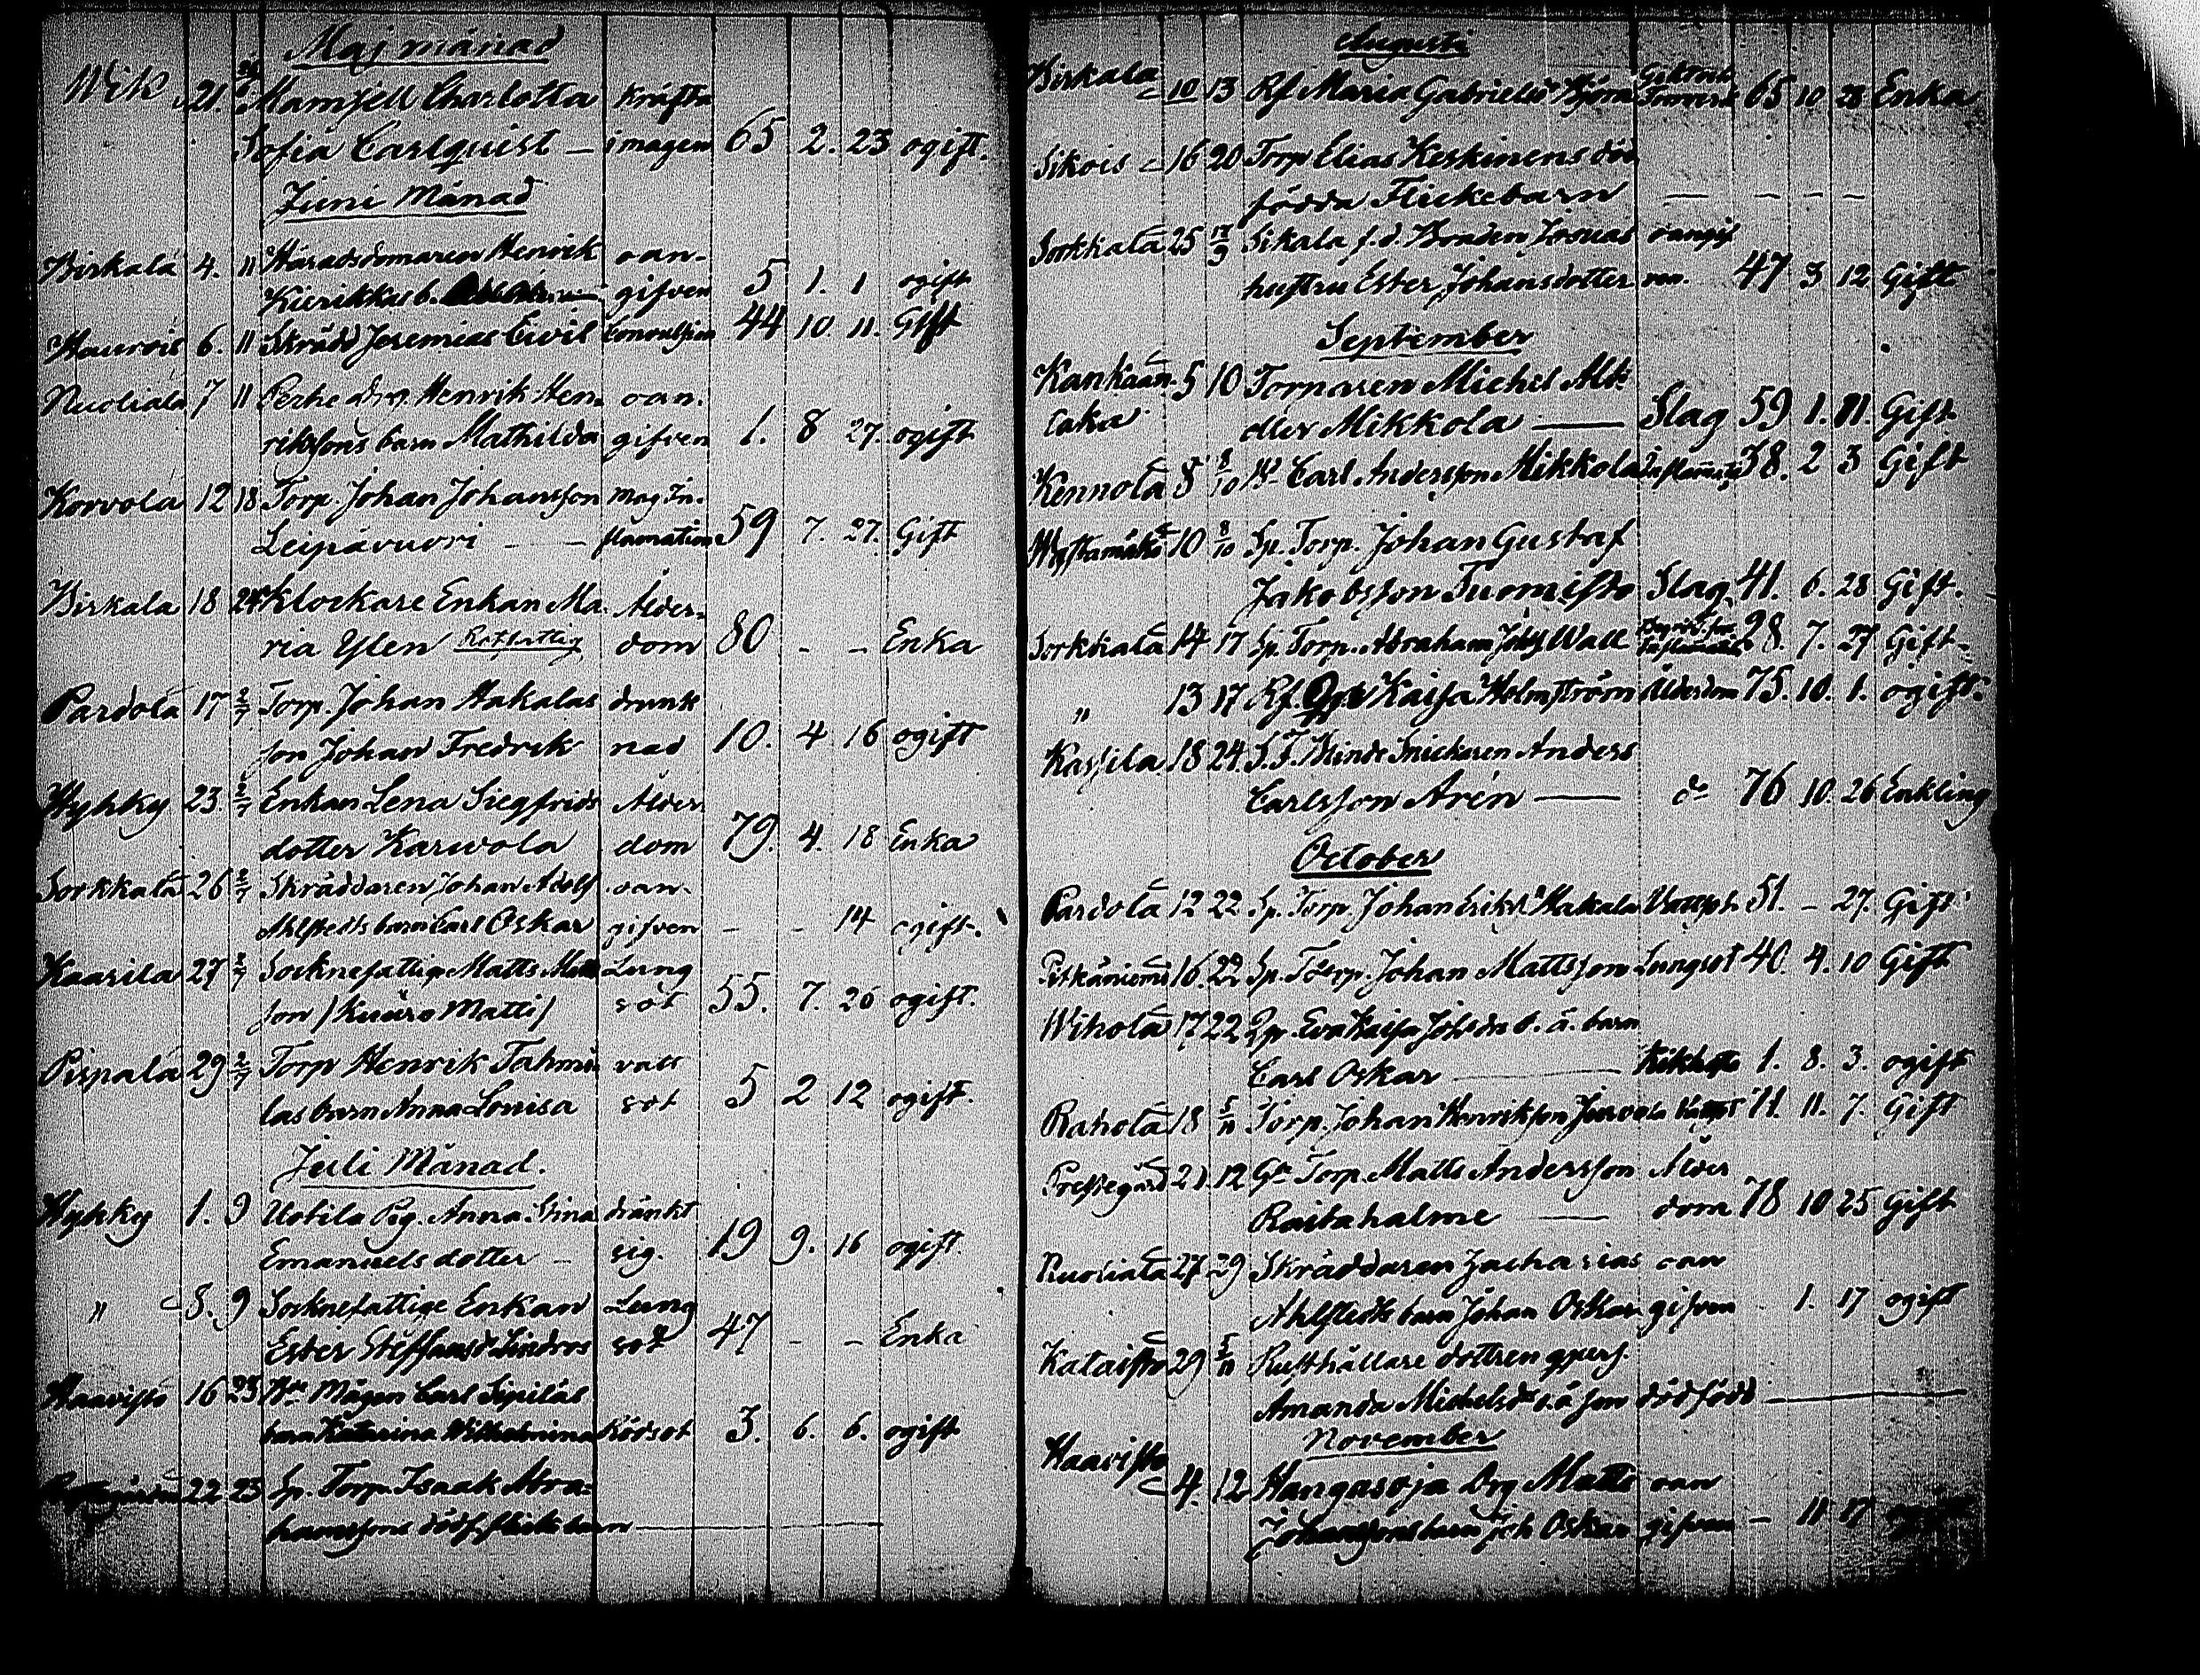 Maj månad
Wik 21. Mamsell Charlotta kräfta
Sofia Carlquist — i magen 65 2. 23 ogift.
Juni Månad
Birkala 4. 11 Häradsdomaren Henrik oan-
Kierikkas b. gifven 5 1. 1 ogift
Haurois 6. 11 Skrädd Jeremias Civil Convulsion 44 10 11. Gift
Nuoliala 7 11 Henrik Hen- oan-
rikssons barn Mathilda gifven 1. 8 27. ogift
Korvola 12 18 Torp. Johan Johansson mag In-
Leipävuori — flamation 59 7. 27. Gift
Birkala 18 24 Klockare Enkan Ma- Ålder-
ria Ylen dom 80 - - Enka
Pardola 17 2/7 Torp. Johan Hakalas drunk
son Johan Fredrik nad 10. 4 16 ogift
Hyhky 23. 2/7 Enkan Lena Siegfrids Ålder
dotter Karvola dom 79. 4. 18 Enka
Sorkkala 26 2/7 Skräddaren Johan Adolf oan-
Ahlstedts barn Carl Oskar gifven - - 14 ogift.
Kaarila 27 2/7 Socknefattige Matts Matts Lung
son /Kuuro Matti/ sot 55. 7. 26 ogift.
Pispala 29 2/7 Torp Henrik Tahme vatt
las barn Anna Lovisa sot 5 2 12 ogift.
Juli Månad.
Hyhky 1. 9 Uotila Pig. Anna Stina dränkt
Emanuels dotter — sig. 19 9. 16 ogift.
" 8. 9 Socknefattige Enkan Lung
Ester Steffansd Lindros sot 47 - - Enka
Haavisto 16 23 Mågen Carl Sipiläs
barn Katarina Wilhelmina Rödsot 3. 6. 6. ogift
22. 23 Sp. Torp. Isaak Abra-
hamssons dödf. flickebarn —
Augusti
Birkala 10 13 Rf. Maria Gabrielsd 65 10 28 Enka
Sikois 16 20 Torp Elias Keskinens död
födda Flickebarn — - - -
Sorkkala 25 Sikala f.d. Bonden oangif
hustru Ester Johansdotter ven. 47 3 12 Gift
September
Kankaan- 5 10 Tornaren Michel Alt
taka eller Mikkola — Slag 59 1. 11. Gift
Kennola 8 8/10 Carl Andersson Mikkola Inflamat 38. 2 3 Gift
10 8/10 Sp. Torp. Johan Gustaf
Jakobsson Tuomisto Slag 41. 6. 28 Gift.
Sorkkala 14 17 Sp. Torp. Abraham Wall 28. 7. 27 Gift-
" 13 17 Rf. Kaisa Holmström Ålderdom 75. 10. 1. ogift.
Kassila 18 24. Snickaren Anders
Carlsson Arén — do 76 10. 26 Enkling
October
Pardola 12 22 Sp. Torp. Johan Eriks Hakala Vattsot. 51. - 27. Gift
Piskäniemi 16. 22 Sp. Torp. Johan Mattsson Lungsot 40. 4. 10 Gift
Wihola 17 22 Eva Kaisa o. ä. barn
Carl Oskar — Kikhosta 1. 8. 3. ogift
Rahola 18 5/11 Torp. Johan Henriksson Vattsot 71. 11. 7. Gift
Prestegård 21. 12 Gl. Torp. Matts Andersson Ålder
Raitahalme — dom 78 10 25 Gift
Nuoliala 27 29 Skräddaren Zacharias oan
Ahlstedts barn Johan Oskar gifven - 1. 17 ogift
Kataisto 29 5/11 Rusthållare dottren
Amanda Michelsds o. ä son dödfödd —
November
Haavisto 4. 12 Hangasoja Drg Matts oan
Johanssons barn Joh Oskar gifven — 11 17